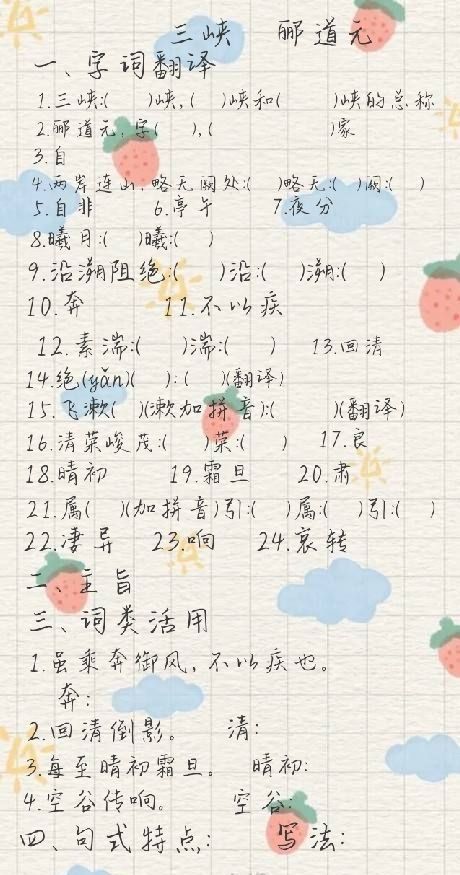 三峡 郦道元
一、字词翻译
1.三峡:( )峡,( )峡和( )峡的总称
2.郦道元,字( ),( )家
3.自
4.两岸连山,略无阙处:( )略无:( )阙:( )
5.自非 6.亭午 7.夜分
8.曦月:( )曦:( )
9.沿溯阻绝:( )沿:( )溯:( )
10.奔 11.不以疾
12.素湍:( )湍:( ) 13.回清
14.绝(yǎn)( ):( )(翻译)
15.飞漱( )(漱加拼音):( )(翻译)
16.清荣峻茂:( )荣:( ) 17.良
18.晴初 19.霜旦 20.肃
21.属( )(加拼音)引:( )属:( )引:( )
22.凄异 23.响 24.哀转
二、主旨
三、词类活用
1.虽乘奔御风,不以疾也。
奔:
2.回清倒影。 清:
3.每至晴初霜旦。 晴初:
4.空谷传响。 空谷:
四、句式特点: 写法: